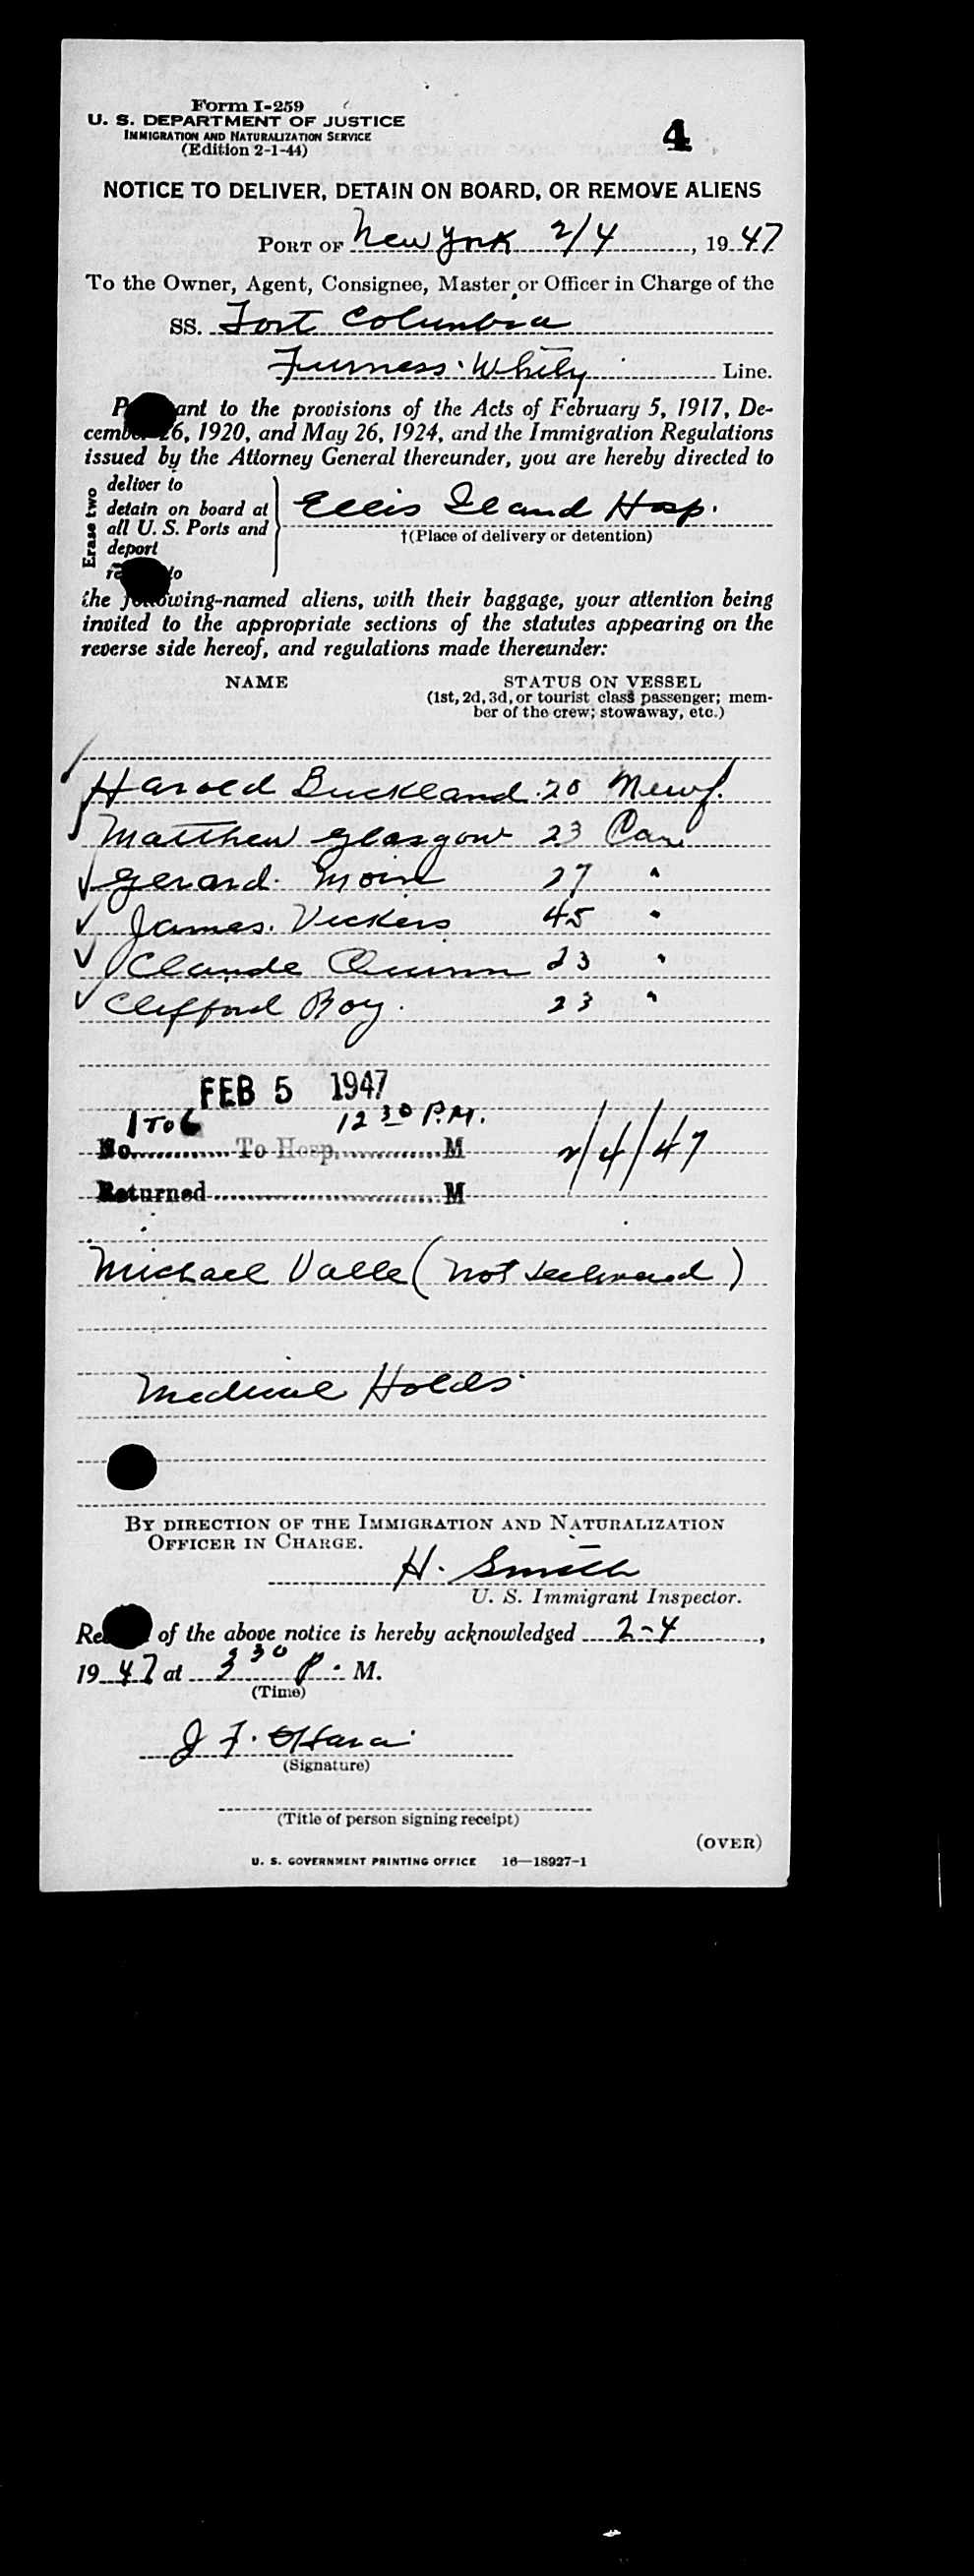 Form I-259
U. S. DEPARTMENT OF JUSTICE
IMMIGRATION AND NATURALIZATION SERVICE
(Edition 2-1-44)
4
NOTICE TO DELIVER, DETAIN ON BOARD, OR REMOVE ALIENS
PORT OF New York 2/4, 1947
To the Owner, Agent, Consignee, Master or Officer in Charge of the
SS. Fort Columbia
Furness Line.
ant to the provisions of the Acts of February 5, 1917, De-
cember 26, 1920, and May 26, 1924, and the Immigration Regulations
issued by the Attorney General thereunder, you are hereby directed to
Erase two
deliver to
detain on board at
all U. S. Ports and
deport
to
Ellis Island Hosp.
†(Place of delivery or detention)
the following-named aliens, with their baggage, your attention being
invited to the appropriate sections of the statutes appearing on the
reverse side hereof, and regulations made thereunder:
NAME STATUS ON VESSEL
(1st, 2d, 3d, or tourist class passenger; mem-
ber of the crew; stowaway, etc.)
Harold Buckland 20 Newf.
Matthew Glasgow 23 Can
Gerard Morin 27 "
James Vickers 45 "
Claude Quinn 23 "
Clifford Roy. 23 "
FEB 5 1947
1 to 6 12 30 P.M.
No. To Hosp. M 2/4/47
Returned M
Michael Valle (not )
Medical Holds
BY DIRECTION OF THE IMMIGRATION AND NATURALIZATION
OFFICER IN CHARGE.
H. Smith
U. S. Immigrant Inspector.
of the above notice is hereby acknowledged 2-4,
1947 at 3 30 P. M.
(Time)
J F. O'Hara
(Signature)
(Title of person signing receipt)
(OVER)
U. S. GOVERNMENT PRINTING OFFICE 16—18927-1